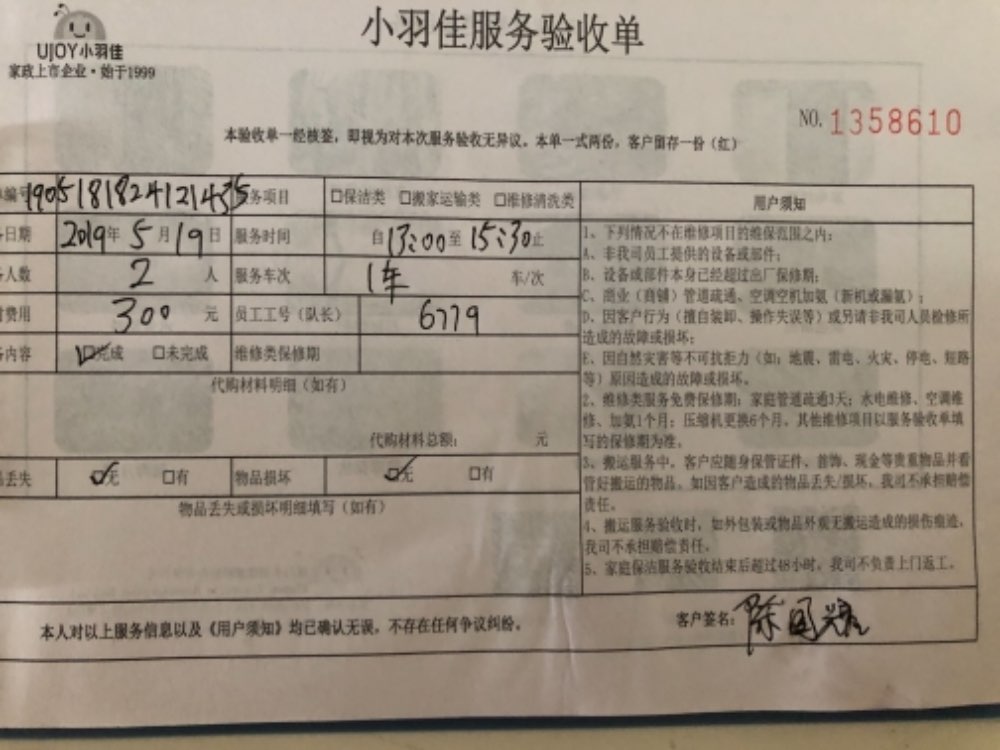 UJOY小羽佳
家政上市企业·始于1999
小羽佳服务验收单
NO. 1358610
本验收单一经核签，即视为对本次服务验收无异议。本单一式两份，客户留存一份（红）
编号 务项目 □保洁类 □搬家运输类 □维修清洗类 用户须知
日期 2019年 5月 19日 服务时间 自13:00至15:30止
人数 2 人 服务车次 1车 车/次
费用 300 元 员工工号（队长） 6779
内容 ☑完成 □未完成 维修类保修期
代购材料明细（如有）
代购材料总额： 元
丢失 ☑无 □有 物品损坏 ☑无 □有
物品丢失或损坏明细填写（如有）
1、下列情况不在维修项目的维保范围之内：
A、非我司员工提供的设备或部件；
B、设备或部件本身已经超过出厂保修期；
C、商业（商铺）管道疏通、空调空机加氨（新机或漏氨）；
D、因客户行为（擅自装卸、操作失误等）或另请非我司人员检修所
造成的故障或损坏；
E、因自然灾害等不可抗拒力（如：地震、雷电、火灾、停电、短路
等）原因造成的故障或损坏。
2、维修类服务免费保修期：家庭管道疏通3天；水电维修、空调维
修、加氨1个月；压缩机更换6个月，其他维修项目以服务验收单填
写的保修期为准。
3、搬运服务中，客户应随身保管证件、首饰、现金等贵重物品并看
管好搬运的物品。如因客户造成的物品丢失/损坏，我司不承担赔偿
责任。
4、搬运服务验收时，如外包装或物品外观无搬运造成的损伤痕迹，
我司不承担赔偿责任。
5、家庭保洁服务验收结束后超过48小时，我司不负责上门返工。
本人对以上服务信息以及《用户须知》均已确认无误，不存在任何争议纠纷。
客户签名：